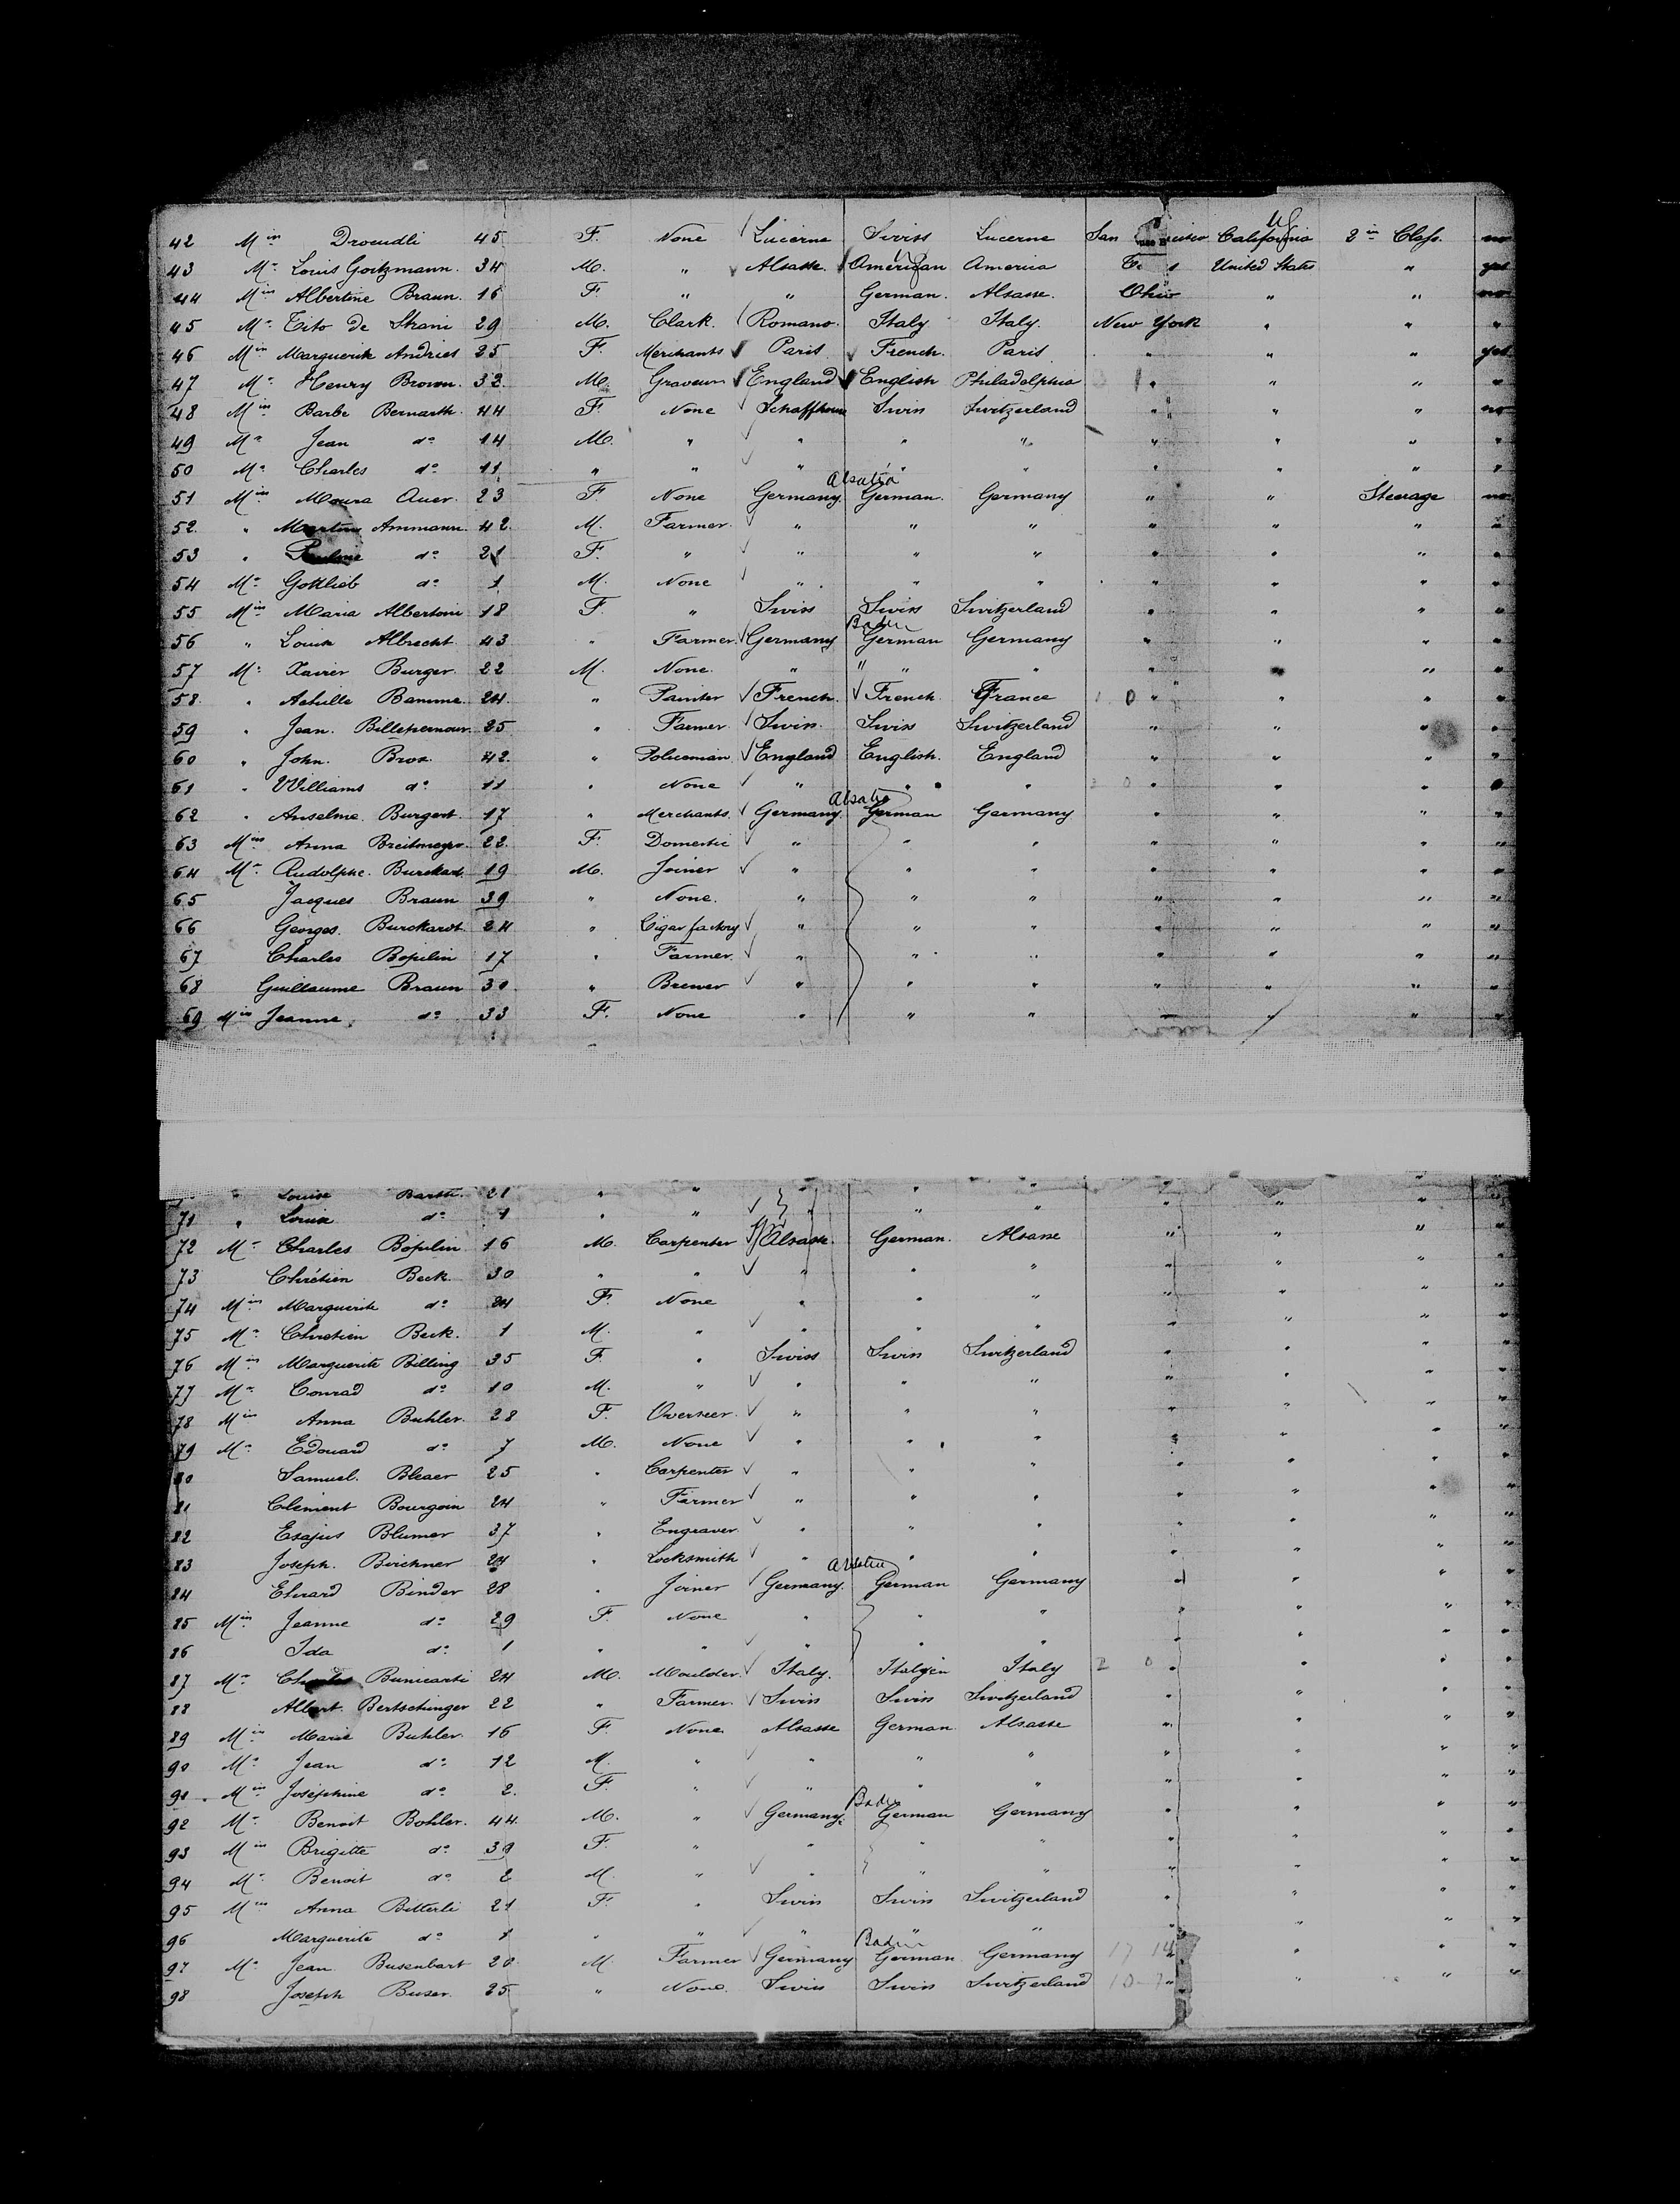 42 Min Droeudli 45 F. None Lucerne Swiss Lucerne San California 2in Class. no
43 Mr Louis Goitzmann. 34 M. " Alsasse. American America United States " yes
44 Min Albertine Braun. 16 F. " " German. Alsasse. Ohio " " no
45 Mr Tito de Strani 29 M. Clark. Romano. Italy Italy. New York " " "
46 Min Marguerite Andries 25 F. Merchants Paris French. Paris " " " yes
47 Mr Henry Brown. 32. M. Graveur England English Philadelphia " " " "
48 Min Barbe Bernarth. 44 F. None Schaffhouse Swiss Switzerland " " " no
49 Mr Jean do 14 M. " " " " " " " "
50 Mr Charles do 11 " " " " " " " " "
Alsatia
51 Min Moura Auer. 23 F. None Germany. German. Germany " " Steerage no
52. " Ammann. 42. M. Farmer. " " " " " " "
53 " do 21 F. " " " " " " " "
54 Mr Gottlieb do 1 M. None " " " " " " "
55 Min Maria Albertoni 18 F. " Swiss Swiss Switzerland " " " "
Baden
56 " Louise Albrecht. 43 " Farmer. Germany German Germany " " " "
57 Mr Xavier Burger. 22 M. None. " " " " " " "
58. " Achille Bamme. 24. " Painter French. French France " " " "
59 " Jean. 25 " Farmer. Swiss. Swiss Switzerland " " " "
60 " John. Brox. 42. " Policeman England English. England " " " "
61 " Williams do 11 " None " " " " " " "
Alsatia
62 " Anselme. Burgert. 17 " Merchants. Germany. German Germany " " " "
63 Min Anna Breitmeyer. 22. F. Domestic " " " " " " "
64 Mr Rudolphe. Burckard. 19 M. Joiner " " " " " " "
65 Jacques Braun 39 " None. " " " " " " "
66 Georges. Burckardt. 24 " Cigar factory " " " " " " "
67 Charles Bopelin 17 " Farmer. " " " " " " "
68 Guillaume Braun 30 " Brewer " " " " " " "
69 Min Jeanne do 33 F. None " " " " " " "
" Louise Barth. 21 " " " " " " " " "
71 " Louise do 1 " " " " " " " " "
72 Mr Charles Bopelin 16 M. Carpenter Alsasse. German. Alsasse " " " "
73 Chrétien Beck 30 " " " " " " " " "
74 Min Marguerite do 24 F. None " " " " " " "
75 Mr Chretien Beck. 1 M. " " " " " " " "
76 Min Marguerite Billing 35 F. " Swiss Swiss Switzerland " " " "
77 Mr Conrad do 10 M. " " " " " " " "
78 Min Anna Buhler. 28 F. Overseer. " " " " " " "
79 Mr Edouard do 7 M. None " " " " " " "
80 Samuel. Bleaer 25 " Carpenter " " " " " " "
81 Clement Bourgoin 24 " Farmer " " " " " " "
82 Esajus Blumer 37 " Engraver " " " " " " "
83 Joseph. Birchner 24 " Locksmith " " " " " " "
Alsatia
84 Edward Binder 28 " Joiner Germany. German Germany " " " "
85 Min Jeanne do 29 F. None " " " " " " "
86 Ida do 1 " " " " " " " " "
87 Mr Charles Bunicarti 24 M. Moulder. Italy. Italyen Italy " " " "
88 Albert. Bertschinger 22 " Farmer. Swiss Swiss Switzerland " " " "
89 Min Marie Buhler. 16 F. None. Alsasse German. Alsasse " " " "
90 Mr Jean do 12 M. " " " " " " " "
91. Min Joséphine do 2. F. " " " " " " " "
Baden
92 Mr Benoit Bohler. 44. M. " Germany. German Germany " " " "
93 Min Brigitte do 39 F. " " " " " " " "
94 Mr Benoit do 2 M. " " " " " " " "
95 Min Anna Bitterli 21 F. " Swiss Swiss Switzerland " " " "
96 Marguerite do 1 " " " " " " " " "
Baden
97 Mr Jean Busenbart 20 M. Farmer Germany German Germany 17 14 " " "
98 Joseph Buser. 25 " None. Swiss Swiss Switzerland " " " "